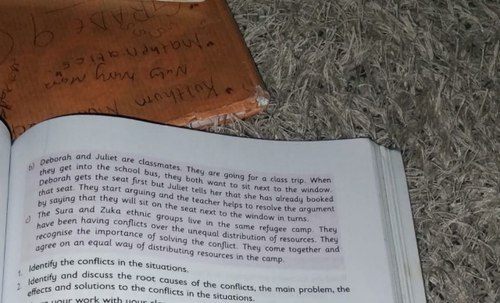 GRADE 9
Mathematics
Kulthum
b) Deborah and Juliet are classmates. They are going for a class trip. When
they get into the school bus, they both want to sit next to the window.
Deborah gets the seat first but Juliet tells her that she has already booked
that seat. They start arguing and the teacher helps to resolve the argument
by saying that they will sit on the seat next to the window in turns.
c) The Sura and Zuka ethnic groups live in the same refugee camp. They
have been having conflicts over the unequal distribution of resources. They
recognise the importance of solving the conflict. They come together and
agree on an equal way of distributing resources in the camp.
1. Identify the conflicts in the situations.
2. Identify and discuss the root causes of the conflicts, the main problem, the
effects and solutions to the conflicts in the situations.
your work with your